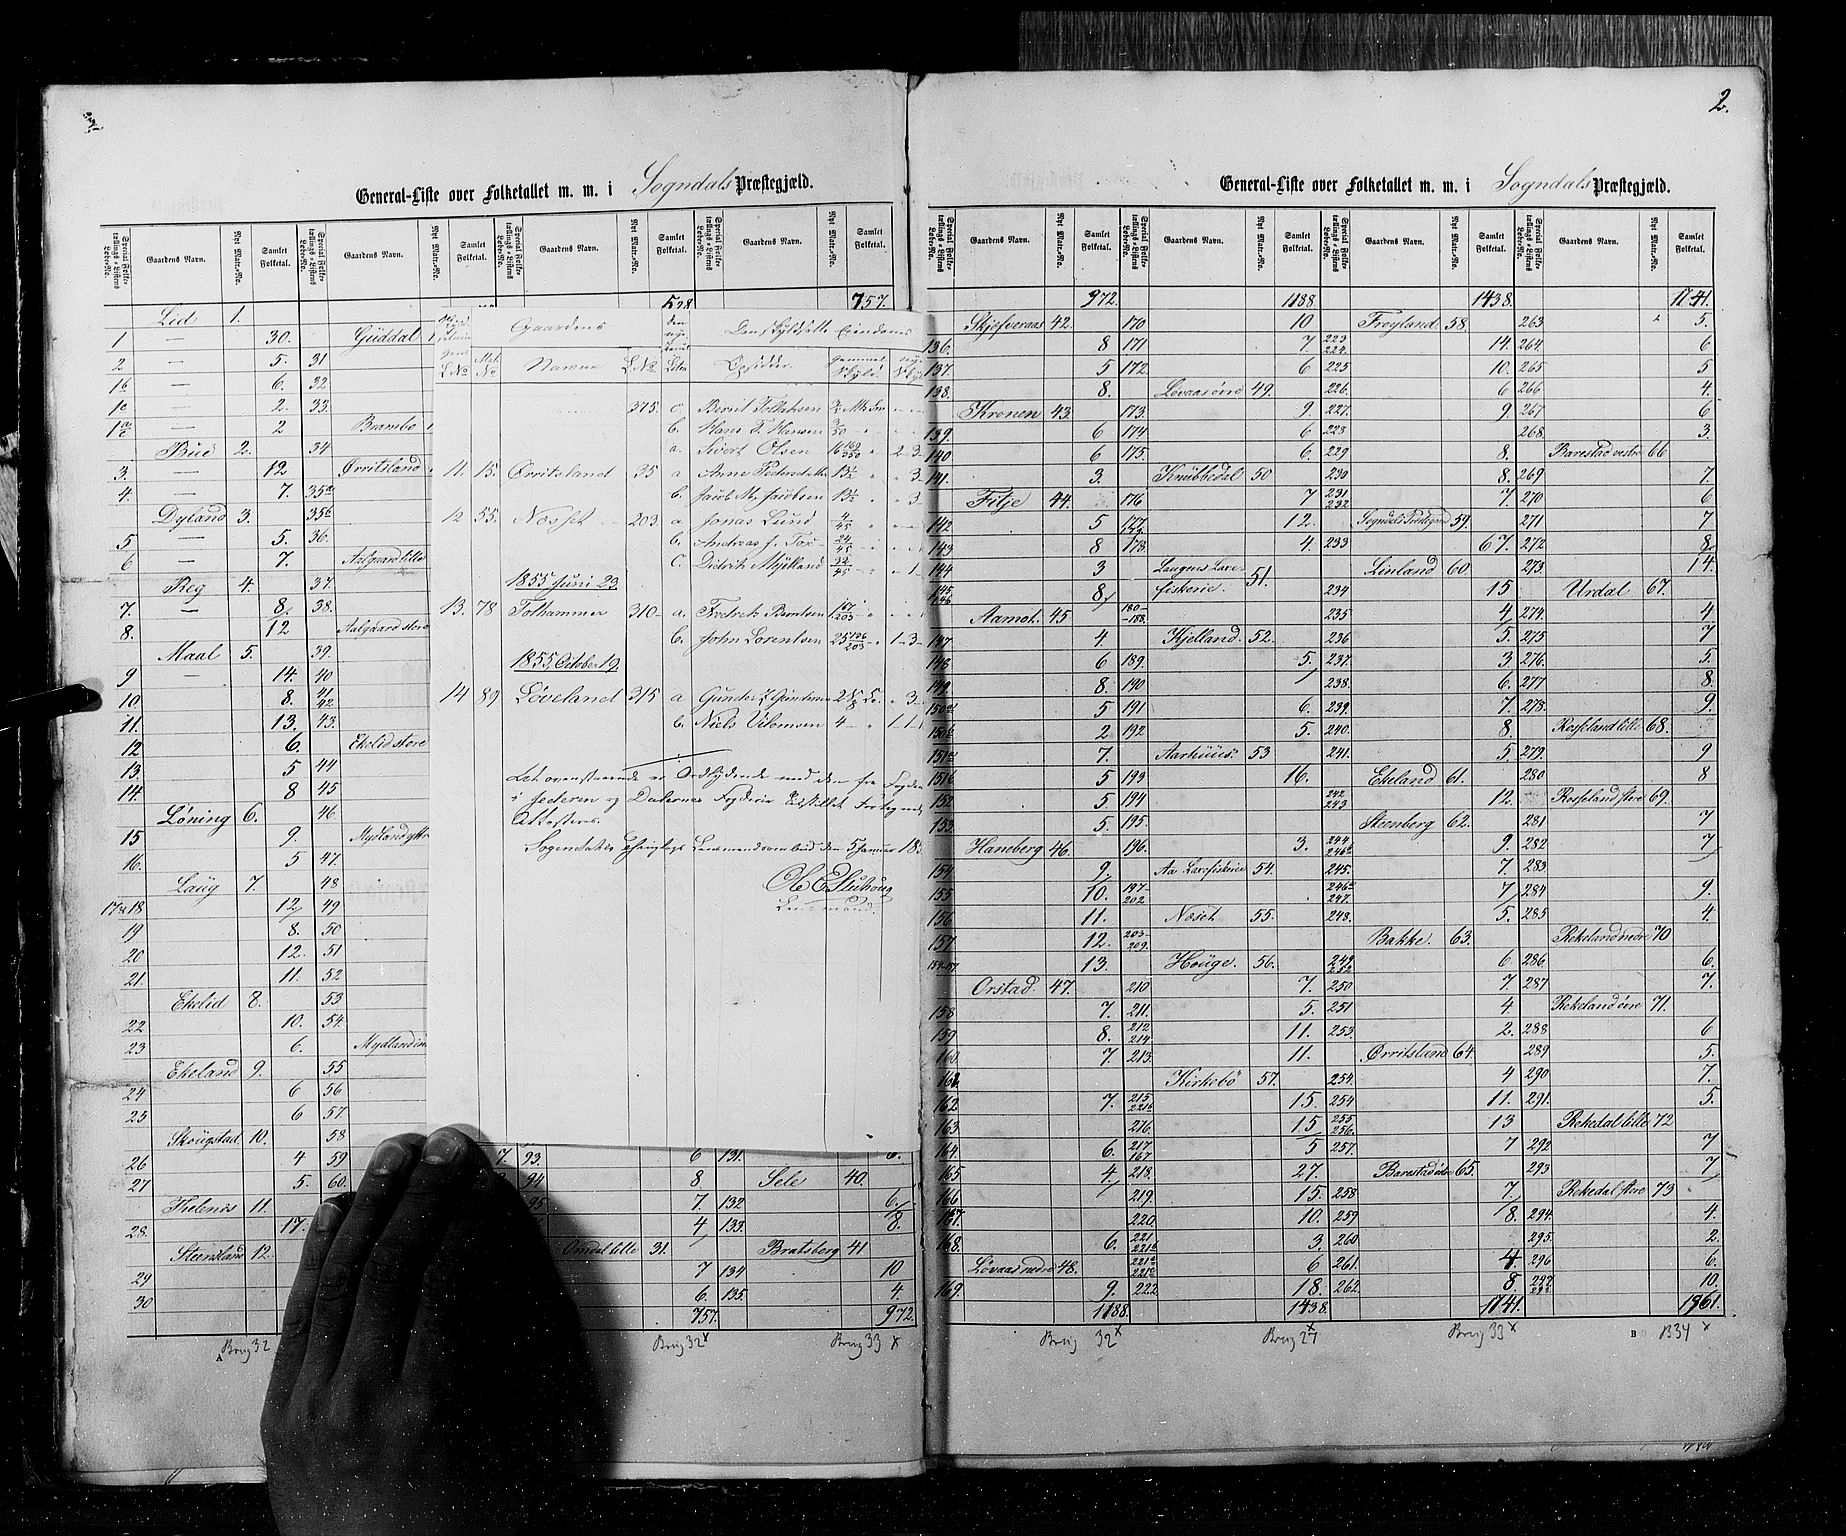 2.
General-Liste over Folketallet m. m. i Sogndals Præstegjæld.
Special Folketællings-Listens Løbe-No. Gaardens Navn. Nyt Matr.-No. Samlet Folketal.
528 757.
Lid 1.
1 — 30. Guddal
2 — 5. 31
1b — 6. 32
1c — 2. 33.
— 2 Brambo
Bue 2. 34
3. — 12 Ørritsland
4. — 7. 35a
Dyland 3. 35b
5 — 5. 36.
6 — 7. Aalgaard lille
Reg 4. 37
7. — 8. 38.
8. 12 Aalgaard store
Maal 5. 39.
9 — 14. 40
10. 8. 41 42
11. 13. 43.
12 6. Ekelid store
13. 5 44
14. 8 45
Løning 6. 46.
15 9. Mydland
16. 5 47
Laug 7. 48
17 & 18 12 49
19 8. 50
20 12. 51
21. 11. 52
Ekelid 8. 53
22 10. 54.
23 6. Mydland
Ekeland 9. 55
24 6 56
25 6 57
Skougstad 10. 58
26 4 59
27 5. 60.
Thelenis 11.
28. 17.
Steensland 12.
29
30
Gaardens Den skyldsatte Eiendoms
Navne L No Opsidder gammel Skyld
375. c. Bernt Tollaksen
b. Hans T. Hansen
a. Sivert Olsen 2 3
11. 15. Ørritsland 35 a Anne 13½ 3
b. Jacob M. Jacobsen 13½ 3
12 55. Næsset 203. a Jonas Lund 4/45
b. Andreas J. Tox 24/45
c. Didrik Mydland 32/45 1
1855 Juni 23
13. 78 Tothammer 310 a. Fredrik Berntsen 167/203
b. John Lorentsen 1 3
1855, October 19.
14 89 Løveland 315 a Gunder Gundersen 3
b. Niels Vilomsen 4 1 1
At ovenstaaende er Ordlydende med den fra Fogden
i Jederen og Dalernes Fogderie Udstillet Fortegnelse
Attesteres.
Sogendals Lensmandsombud den 5 Januar 18
Lensmand.
7. 93. 6 131. 6.
94 8 Sele 40.
95 7. 132 6
4 133. 8.
Omdal lille 31. Bratsberg 41
7 134 10
6. 135. 4.
757. 972.
Brug 32 Brug 32 x Brug 33 x
A
2.
General-Liste over Folketallet m. m. i Sogndals Præstegjæld.
Special Folketællings-Listens Løbe-No. Gaardens Navn. Nyt Matr.-No. Samlet Folketal.
972. 1188. 1438. 1741.
Skjefveraas 42. 170 10 Frøyland 58. 263 5.
136. 8 171 7 223 224. 14. 264 6
137. 5 172. 6 225 10. 265 5
138. 8. Løvaas øvre 49. 226. 6 266 4.
Kronen 43. 173. 9. 227. 9 267 6
139. 6 174 6 228 268. 3.
140 6 175. 6 229 8. Barestad vestre 66
141. 3. Knubbedal 50 230 8. 269 7.
Fitje 44. 176 7 231 232 7. 270 6
142 5 177 12. Sogndals Præstegaard 59. 271 7
143 8 178. 4. 233 67. 272 8.
144 3 Laugnes Laxe- Linland 60. 273. 14.
145 146 8 fiskerie. 51. 234 15 Urdal 67.
Aamot 45 180-188. 235 4 274. 4
147 4. Hjelland. 52. 236 5. 275 7
148 6 189. 5. 237. 3 276. 5.
149. 8. 190 238. 6. 277 8
150a 5 191 6. 239. 7. 278. 9.
150b 2 192 5. 240. 8. Rosseland lille 68.
151a 7. Aarhuus. 53 241. 5 279. 9
151b 5 193 16. Ekeland 61. 280 8
152 5. 194 242 243 12. Rosseland store 69.
153 5. 195. Steenberg 62. 281 7
Haneberg 46. 196. 3. 244 9. 282 7
154 9. Aa Laxefiskerie 54. 245. 7. 283
155 10. 197-202 246a 247. 7 284 9.
156 11. Næset 55. 248. 5. 285 4.
157 12. 203-209. Bakke. 63. Rekeland nedre 70
13. Houge. 56. 6 286 6.
Orstad. 47. 210 7. 250 7 287 7.
158 7. 211. 5. 251 4. Rekeland øvre 71.
159 8. 212 214 11. 253 2. 288 6
160 7 213. 11. Ørritsland 64. 289 5.
161. Kirkebø 57. 254. 4 290 7.
162 7. 215 15. 254 11. 291. 5.
163 216. 15 255 256. 13 Rekedal lille 72
164. 6. 217 167 5 257. 7 292 7
165 4. 218. 27. Barestad øvre 65. 293 7
166 219. 15. 258 7. Rekedal store 73
167. 220. 10. 259 8. 294. 4.
168. 6. 221 3. 260 295. 2.
Løvaas nedre 48. 6 261. 4. 296 6.
169. 9. 222 18. 262. 8 10.
1188. 1438. 1741. 1961.
Brug 32 x Brug 27 x Brug 33 x B B34 x